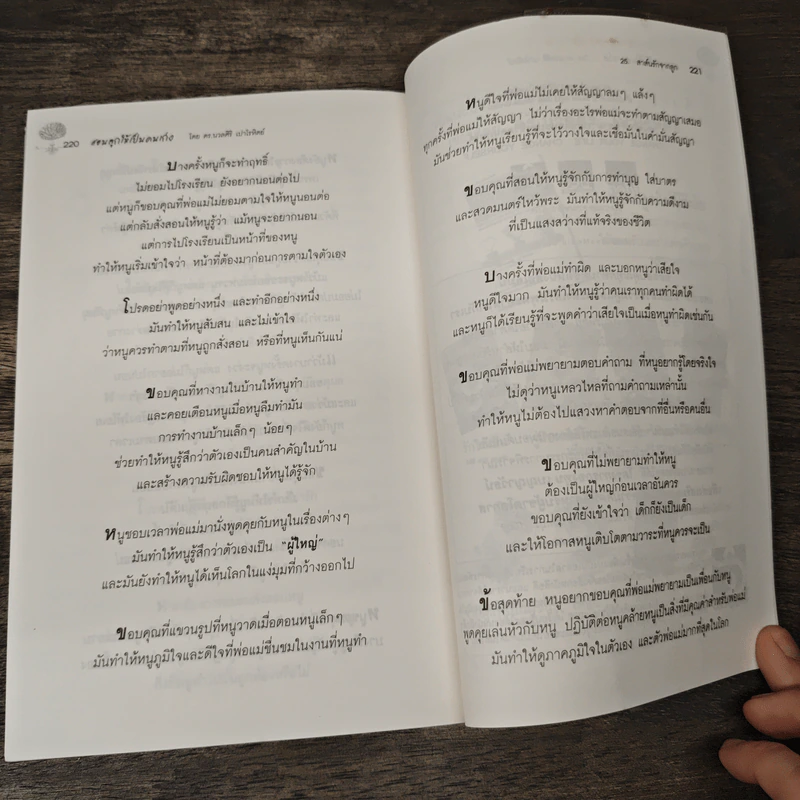 220 สอนลูกให้เป็นคนเก่ง โดย ดร.นวลศิริ เปาโรหิตย์
บางครั้งหนูก็จะทำฤทธิ์
ไม่ยอมไปโรงเรียน ยังอยากนอนต่อไป
แต่หนูก็ขอบคุณที่พ่อแม่ไม่ยอมตามใจให้หนูนอนต่อ
แต่กลับสั่งสอนให้หนูรู้ว่า แม้หนูจะอยากนอน
แต่การไปโรงเรียนเป็นหน้าที่ของหนู
ทำให้หนูเริ่มเข้าใจว่า หน้าที่ต้องมาก่อนการตามใจตัวเอง
โปรดอย่าพูดอย่างหนึ่ง และทำอีกอย่างหนึ่ง
มันทำให้หนูสับสน และไม่เข้าใจ
ว่าหนูควรทำตามที่หนูถูกสั่งสอน หรือที่หนูเห็นกันแน่
ขอบคุณที่หางานในบ้านให้หนูทำ
และคอยเตือนหนูเมื่อหนูลืมทำมัน
การทำงานบ้านเล็กๆ น้อยๆ
ช่วยทำให้หนูรู้สึกว่าตัวเองเป็นคนสำคัญในบ้าน
และสร้างความรับผิดชอบให้หนูได้รู้จัก
หนูชอบเวลาพ่อแม่มานั่งพูดคุยกับหนูในเรื่องต่างๆ
มันทำให้หนูรู้สึกว่าตัวเองเป็น "ผู้ใหญ่"
และมันยังทำให้หนูได้เห็นโลกในแง่มุมที่กว้างออกไป
ขอบคุณที่แขวนรูปที่หนูวาดเมื่อตอนหนูเล็กๆ
มันทำให้หนูภูมิใจและดีใจที่พ่อแม่ชื่นชมในงานที่หนูทำ
25 สาส์นรักจากลูก 221
หนูดีใจที่พ่อแม่ไม่เคยให้สัญญาลมๆ แล้งๆ
ทุกครั้งที่พ่อแม่ให้สัญญา ไม่ว่าเรื่องอะไรพ่อแม่จะทำตามสัญญาเสมอ
มันช่วยทำให้หนูเรียนรู้ที่จะไว้วางใจและเชื่อมั่นในคำมั่นสัญญา
ขอบคุณที่สอนให้หนูรู้จักกับการทำบุญ ใส่บาตร
และสวดมนตร์ไหว้พระ มันทำให้หนูรู้จักกับความดีงาม
ที่เป็นแสงสว่างที่แท้จริงของชีวิต
บางครั้งที่พ่อแม่ทำผิด และบอกหนูว่าเสียใจ
หนูดีใจมาก มันทำให้หนูรู้ว่าคนเราทุกคนทำผิดได้
และหนูก็ได้เรียนรู้ที่จะพูดคำว่าเสียใจเป็นเมื่อหนูทำผิดเช่นกัน
ขอบคุณที่พ่อแม่พยายามตอบคำถาม ที่หนูอยากรู้โดยจริงใจ
ไม่ดุว่าหนูเหลวไหลที่ถามคำถามเหล่านั้น
ทำให้หนูไม่ต้องไปแสวงหาคำตอบจากที่อื่นหรือคนอื่น
ขอบคุณที่ไม่พยายามทำให้หนู
ต้องเป็นผู้ใหญ่ก่อนเวลาอันควร
ขอบคุณที่ยังเข้าใจว่า เด็กก็ยังเป็นเด็ก
และให้โอกาสหนูเติบโตตามวาระที่หนูควรจะเป็น
ข้อสุดท้าย หนูอยากขอบคุณที่พ่อแม่พยายามเป็นเพื่อนกับหนู
พูดคุยเล่นหัวกับหนู ปฏิบัติต่อหนูคล้ายหนูเป็นสิ่งที่มีคุณค่าสำหรับพ่อแม่
มันทำให้ดูภาคภูมิใจในตัวเอง และตัวพ่อแม่มากที่สุดในโลก